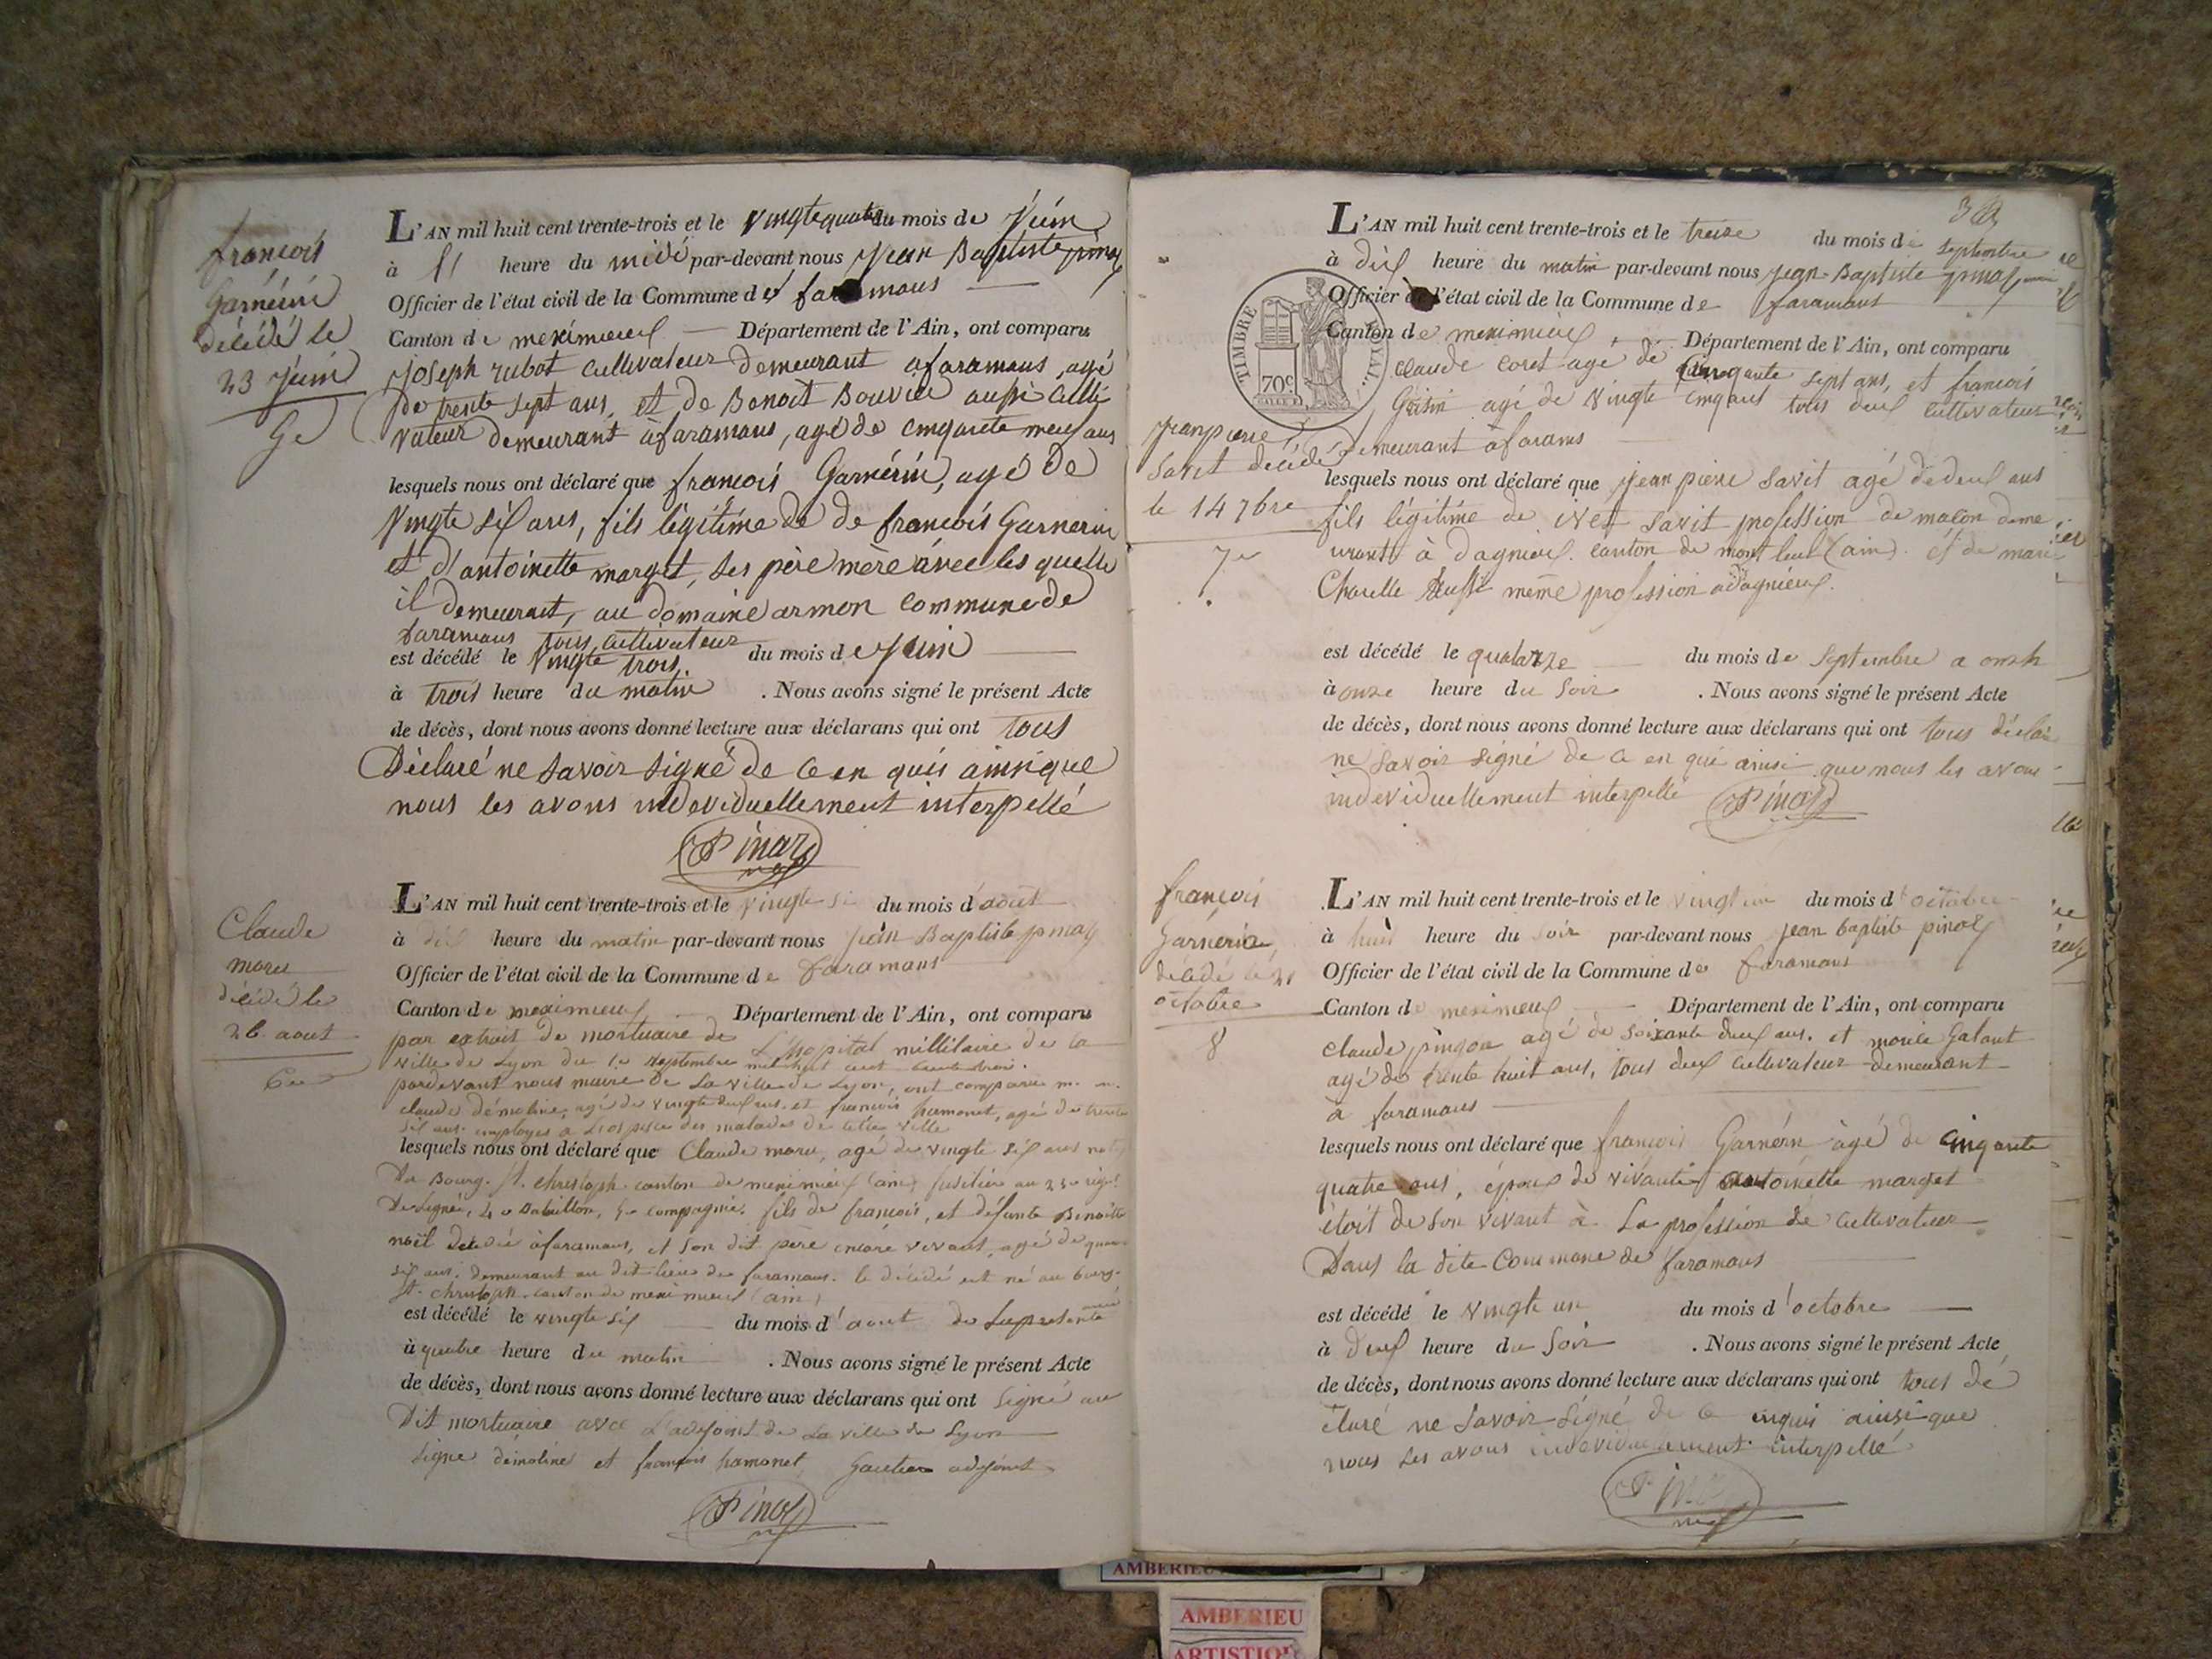 françois
Garnérin
décédé le
23 Juin
5e
L'AN mil huit cent trente-trois et le vingtequatre du mois de Juin
à 11 heure du midi par-devant nous Jean Baptiste pinay
Officier de l'état civil de la Commune de faramans
Canton de meximieux Département de l'Ain, ont comparu
joseph rubat cultivateur demeurant afaramans, agé
de trente sept ans, et de Benoit Bouvier aussi culti
vateur demeurant àfaramans, agé de cinqante neuf ans
lesquels nous ont déclaré que françois Garnérin, agé de
Vingte six ans, fils légitime de de françois Garnerin
et d'antoinette marget, ses père mère avec les quelle
il demeurait, au domaine armon commune de
faramans tous cultivateur
est décédé le vingte trois du mois de Juin
à trois heure du matin. Nous avons signé le présent Acte
de décès, dont nous avons donné lecture aux déclarans qui ont tous
Déclaré ne savoir signé de ce en quis ainsi que
nous les avons indeviduellement interpellé
Pinay
Claude
moru
décédé le
26 aout
6e
L'AN mil huit cent trente-trois et le vingte si du mois d'aout
à dix heure du matin par-devant nous Jean Baptiste pinay
Officier de l'état civil de la Commune de faramans
Canton de meximieux Département de l'Ain, ont comparu
par extrait de mortuaire de L'hopital millitaire de la
ville de Lyon du 1er septembre mil huit cent trente trois.
pardevant nous maire de La ville de Lyon, ont comparu m. m.
claude démoline, agé de vingte deux ans. et françois hamonet, agé de trente
six ans. employés a L'ospice des malades de cette ville
lesquels nous ont déclaré que Claude moru, agé de vingte six ans natif
Du Bourg. St. christoph. canton de meximieux (ain) fusilier au 25e régt.
De Ligne, 4e Bataillon, 5e compagnie. fils de françois, et défunte Benoitte
noël décédé àfaramans, et son dit père encore vivant, agé de
six ans. demeurant au dit lieu de faramans. le décédé est né au bourg.
St. christoph. canton de meximieux (ain)
est décédé le vingte six du mois d'aout de Lapresente année
à quatre heure du matin. Nous avons signé le présent Acte
de décès, dont nous avons donné lecture aux déclarans qui ont signé au
Dit mortuaire avec L'adjoint de La ville de Lyon
signé démoline et françois hamonet Gautier adjoint
Pinay
TIMBRE ROYAL
70c
L'AN mil huit cent trente-trois et le treize du mois de septembre
à dix heure du matin par-devant nous jean-Baptiste pinay
Officier de l'état civil de la Commune de faramans
Canton de meximieux Département de l'Ain, ont comparu
claude coret agé de cinqante sept ans, et françois
agé de vingte cinq ans tous deux cultivateur
demeurant àfarams
jeanpierre
Savit décédé
le 14 7bre
7e
lesquels nous ont déclaré que jean pierre Savit agé de deux ans
fils légitime de Savit profession de maçon deme
urant à Dagnieux. canton de mont luel (ain). et de marie
Charelle aussi même profession adagnieux.
est décédé le quatorze du mois de septembre a onzh
à onze heure du soir. Nous avons signé le présent Acte
de décès, dont nous avons donné lecture aux déclarans qui ont tous déclaré
ne savoir signé de ce en qui ainsi que nous les avons
indeviduellement interpellé Pinay
françois
Garnerin
décédé le 21
octobre
8
L'AN mil huit cent trente-trois et le vingt un du mois d'octobre
à huit heure du soir par-devant nous jean baptiste pinay
Officier de l'état civil de la Commune de faramans
Canton de meximieux Département de l'Ain, ont comparu
claude pingon agé de soixante deux ans. et Galant
agé de trente huit ans, tous deux cultivateur demeurant
à faramans
lesquels nous ont déclaré que françois Garnérin agé de cinqante
quatre ans, époux de vivante antoinette marget
étoit de son vivant à La profession de cultivateur
Dans la dite Commune de faramans
est décédé le vingte un du mois d'octobre
à deux heure du soir. Nous avons signé le présent Acte
de décès, dont nous avons donné lecture aux déclarans qui ont tous dé
claré ne savoir signé de ce enquis ainsi que
nous les avons indeviduelement interpellé
AMBERIEU
AMBERIEU
ARTISTIQUE